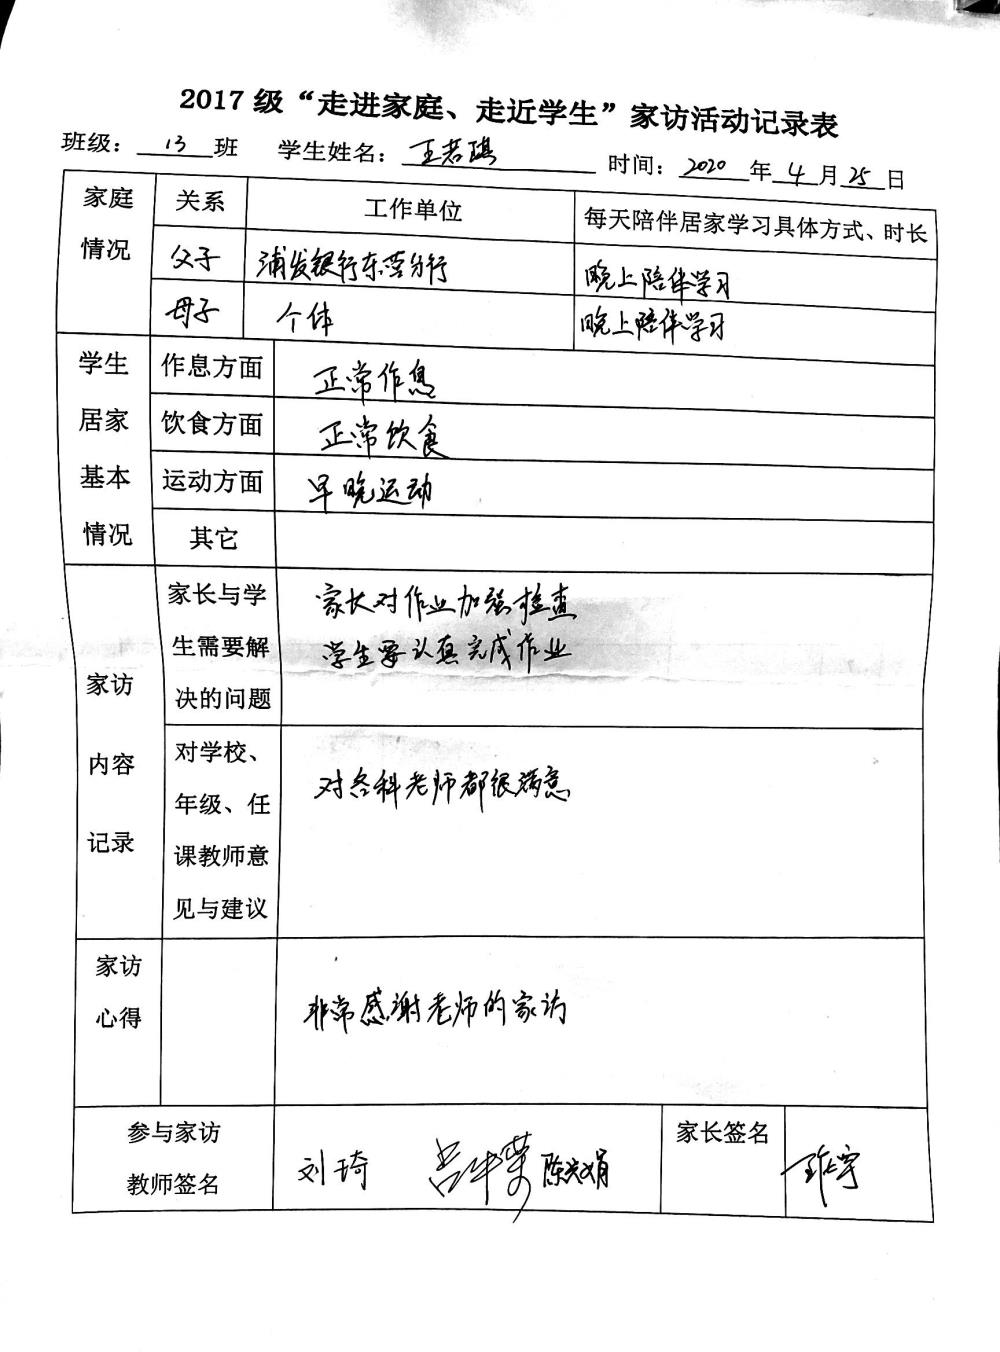 2017 级“走进家庭、走近学生”家访活动记录表
班级： 13 班 学生姓名： 王若琪 时间： 2020 年 4 月 25 日
家庭情况 关系 工作单位 每天陪伴居家学习具体方式、时长
父子 浦发银行东营分行 晚上陪伴学习
母子 个体 晚上陪伴学习
学生居家基本情况
作息方面 正常作息
饮食方面 正常饮食
运动方面 早晚运动
其它
家访内容记录
家长与学
生需要解
决的问题
家长对作业加强检查
学生要认真完成作业
对学校、
年级、任
课教师意
见与建议
对各科老师都很满意
家访
心得
非常感谢老师的家访
参与家访
教师签名
刘琦 陈兴娟
家长签名